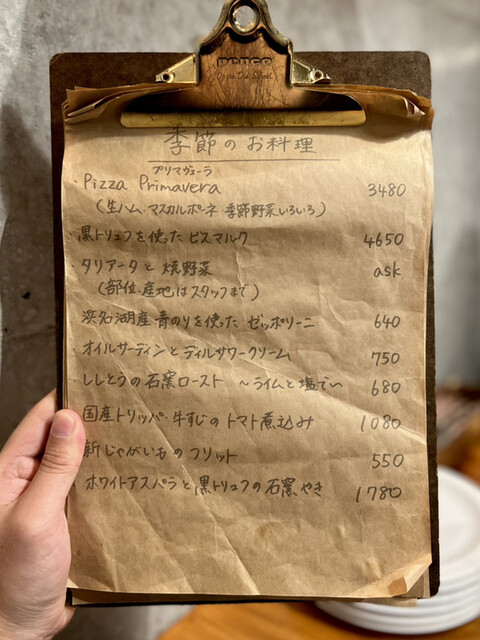 penco
季節のお料理
プリマヴェーラ
・Pizza Primavera 3480
(生ハム・マスカルポーネ・季節野菜いろいろ)
・黒トリュフを使ったビスマルク 4650
・タリアータと焼野菜 ask
(部位・産地はスタッフまで)
・浜名湖産青のりを使ったゼッポリーニ 640
・オイルサーディンとディルサワークリーム 750
・ししとうの石窯ロースト 〜ライムと塩で〜 680
・国産トリッパ・牛すじのトマト煮込み 1080
・新じゃがいものフリット 550
・ホワイトアスパラと黒トリュフの石窯やき 1780